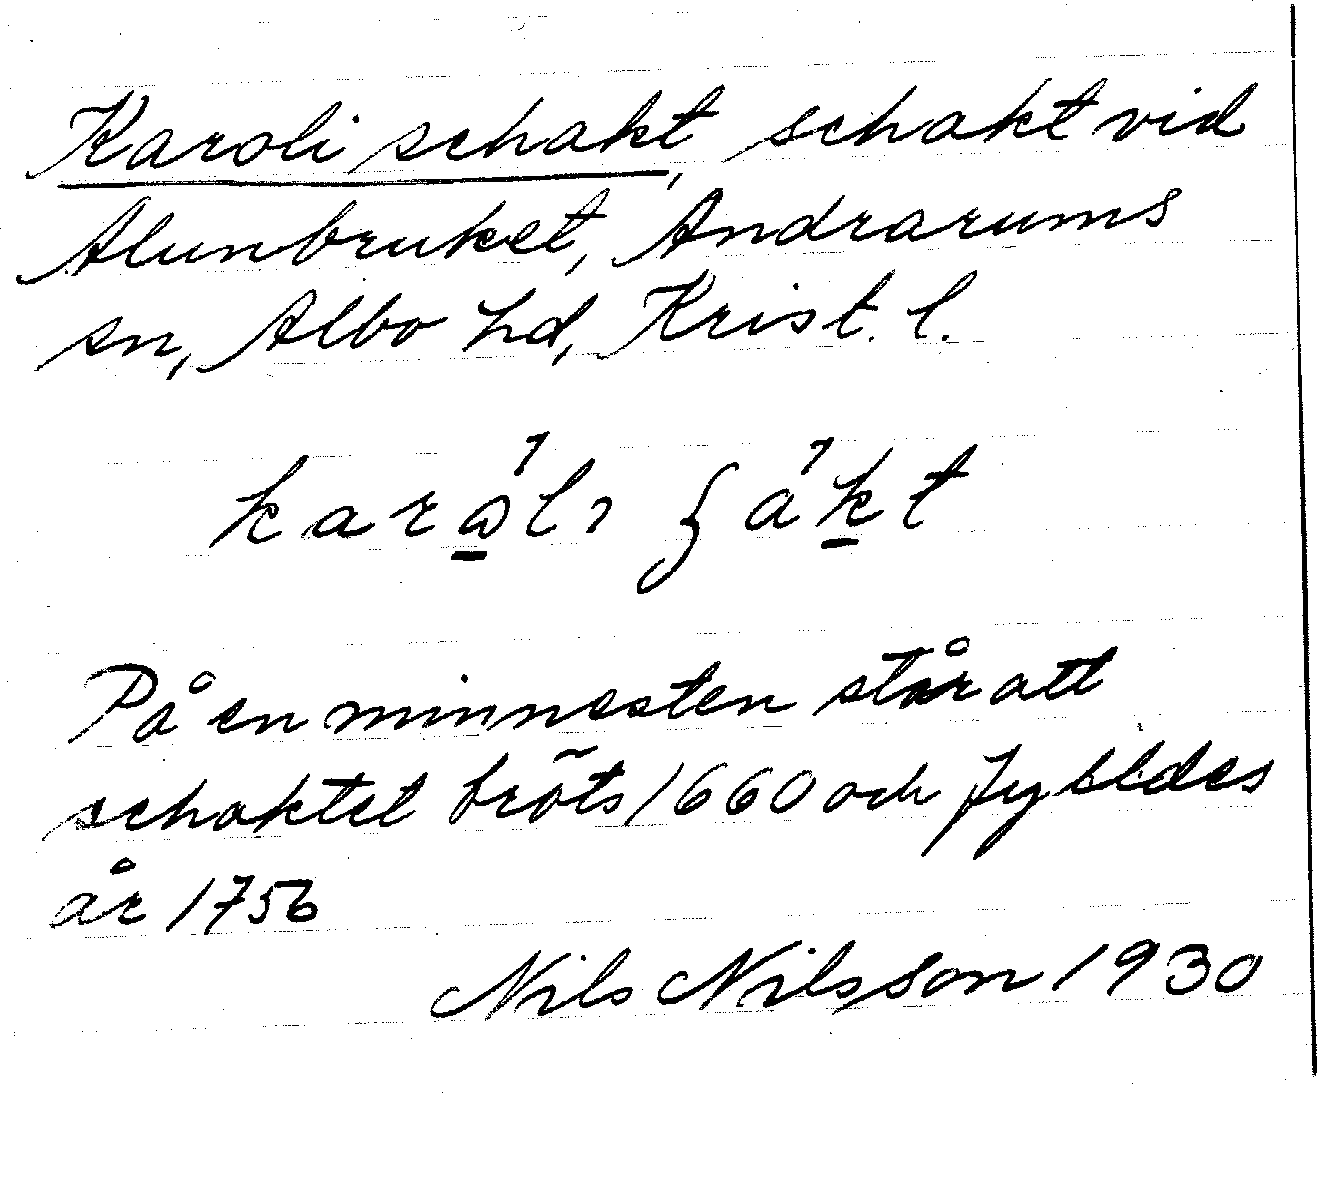 Karoli schakt, schakt vid
Alunbruket, Andrarums
sn, Albo hd, Krist. l.
På en minnesten står att
schaktet bröts 1660 och fylldes
år 1756
Nils Nilsson 1930